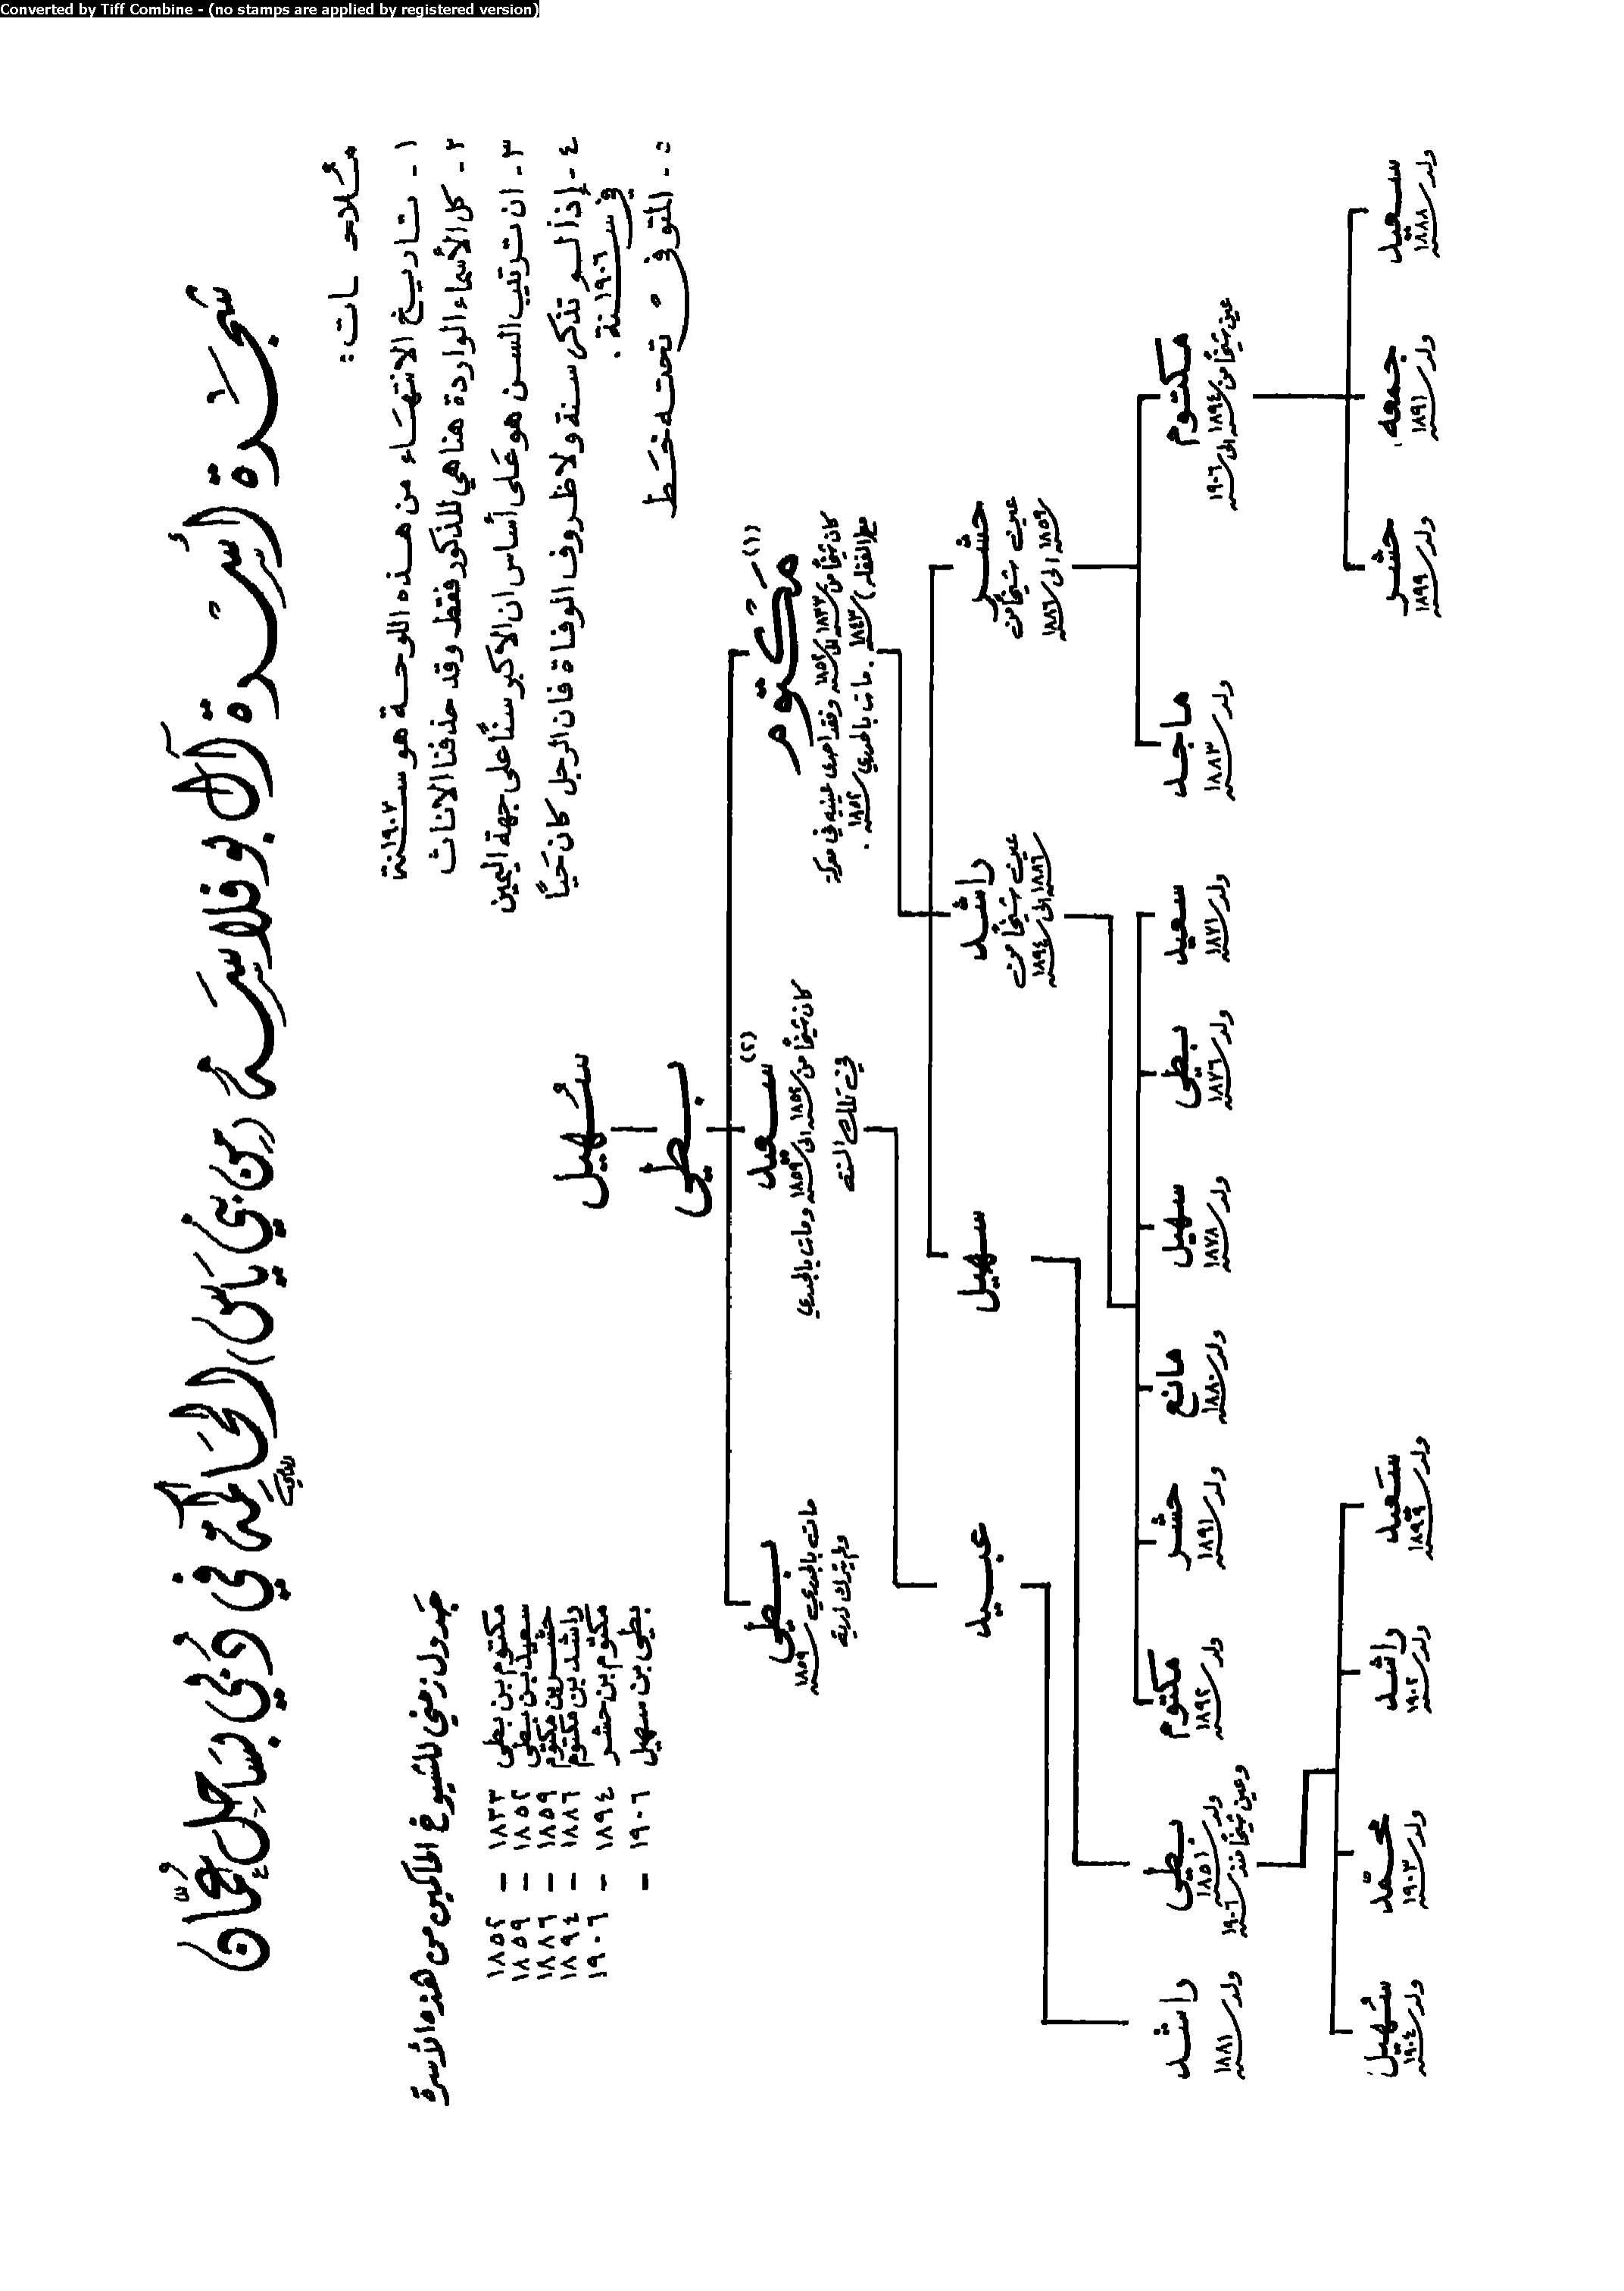 Converted by Tiff Combine - (no stamps are applied by registered version)
شجرة أسرة آل بو فلاسه (من بني ياس) الحاكمة في دبي بساحل عُمان
ملاحظات :
١ - تاريخ الانتهاء من هذه اللوحة هو سنة ١٩٠٧
٢ - كل الأسماء الواردة هنا هي للذكور فقط وقد حذفنا الاناث
٣ - ان ترتيب السن هو على أساس ان الأكبر سناً على جهة اليمين
٤ - إذا لم تذكر سنة ولا ظروف الوفاة فان الرجل كان حياً
في سنة ١٩٠٦ .
٥ - المتوفى تحته خط
جدول زمني للشيوخ الحاكمين من هذه الأسرة
مكتوم بن بطي ١٨٣٣ – ١٨٥٢
سعيد بن بطي ١٨٥٢ – ١٨٥٩
حشر بن مكتوم ١٨٥٩ – ١٨٨٦
راشد بن مكتوم ١٨٨٦ – ١٨٩٤
مكتوم بن حشر ١٨٩٤ – ١٩٠٦
بطي بن سهيل ١٩٠٦ –
سُهيل
بطي
مكتوم (١)
كان شيخاً من سنة ١٨٣٣ الى سنة ١٨٥٢ وفقد احدى عينيه في معركة
سنة ١٨٤٣ . مات بالجدري سنة ١٨٥٢ .
سعيد (٢)
كان شيخاً من سنة ١٨٥٢ الى سنة ١٨٥٩ ومات بالجدري
في تلك السنة
بطي
مات بالجدري سنة ١٨٥٩
ولم يترك ذرية
حشر
عين شيخاً من
سنة ١٨٥٩ الى سنة ١٨٨٦
راشد
عين شيخاً من
سنة ١٨٨٦ الى سنة ١٨٩٤
سهيل
عبيد
مكتوم
عين شيخاً من
سنة ١٨٩٤ الى سنة ١٩٠٦
ماجد
ولد سنة ١٨٨٣
سعيد
ولد سنة ١٨٧١
بطي
ولد سنة ١٨٧٦
سهيل
ولد سنة ١٨٧٨
مانع
ولد سنة ١٨٨٠
حشر
ولد سنة ١٨٩١
مكتوم
ولد سنة ١٨٩٢
بطي
ولد سنة ١٨٥١
وعين شيخاً منذ سنة ١٩٠٦
راشد
ولد سنة ١٨٨١
سعيد
ولد سنة ١٨٨٨
جمعه
ولد سنة ١٨٩١
حشر
ولد سنة ١٨٩٩
سعيد
ولد سنة ١٨٩٩
راشد
ولد سنة ١٩٠٢
محمد
ولد سنة ١٩٠٣
سُهيل
ولد سنة ١٩٠٤